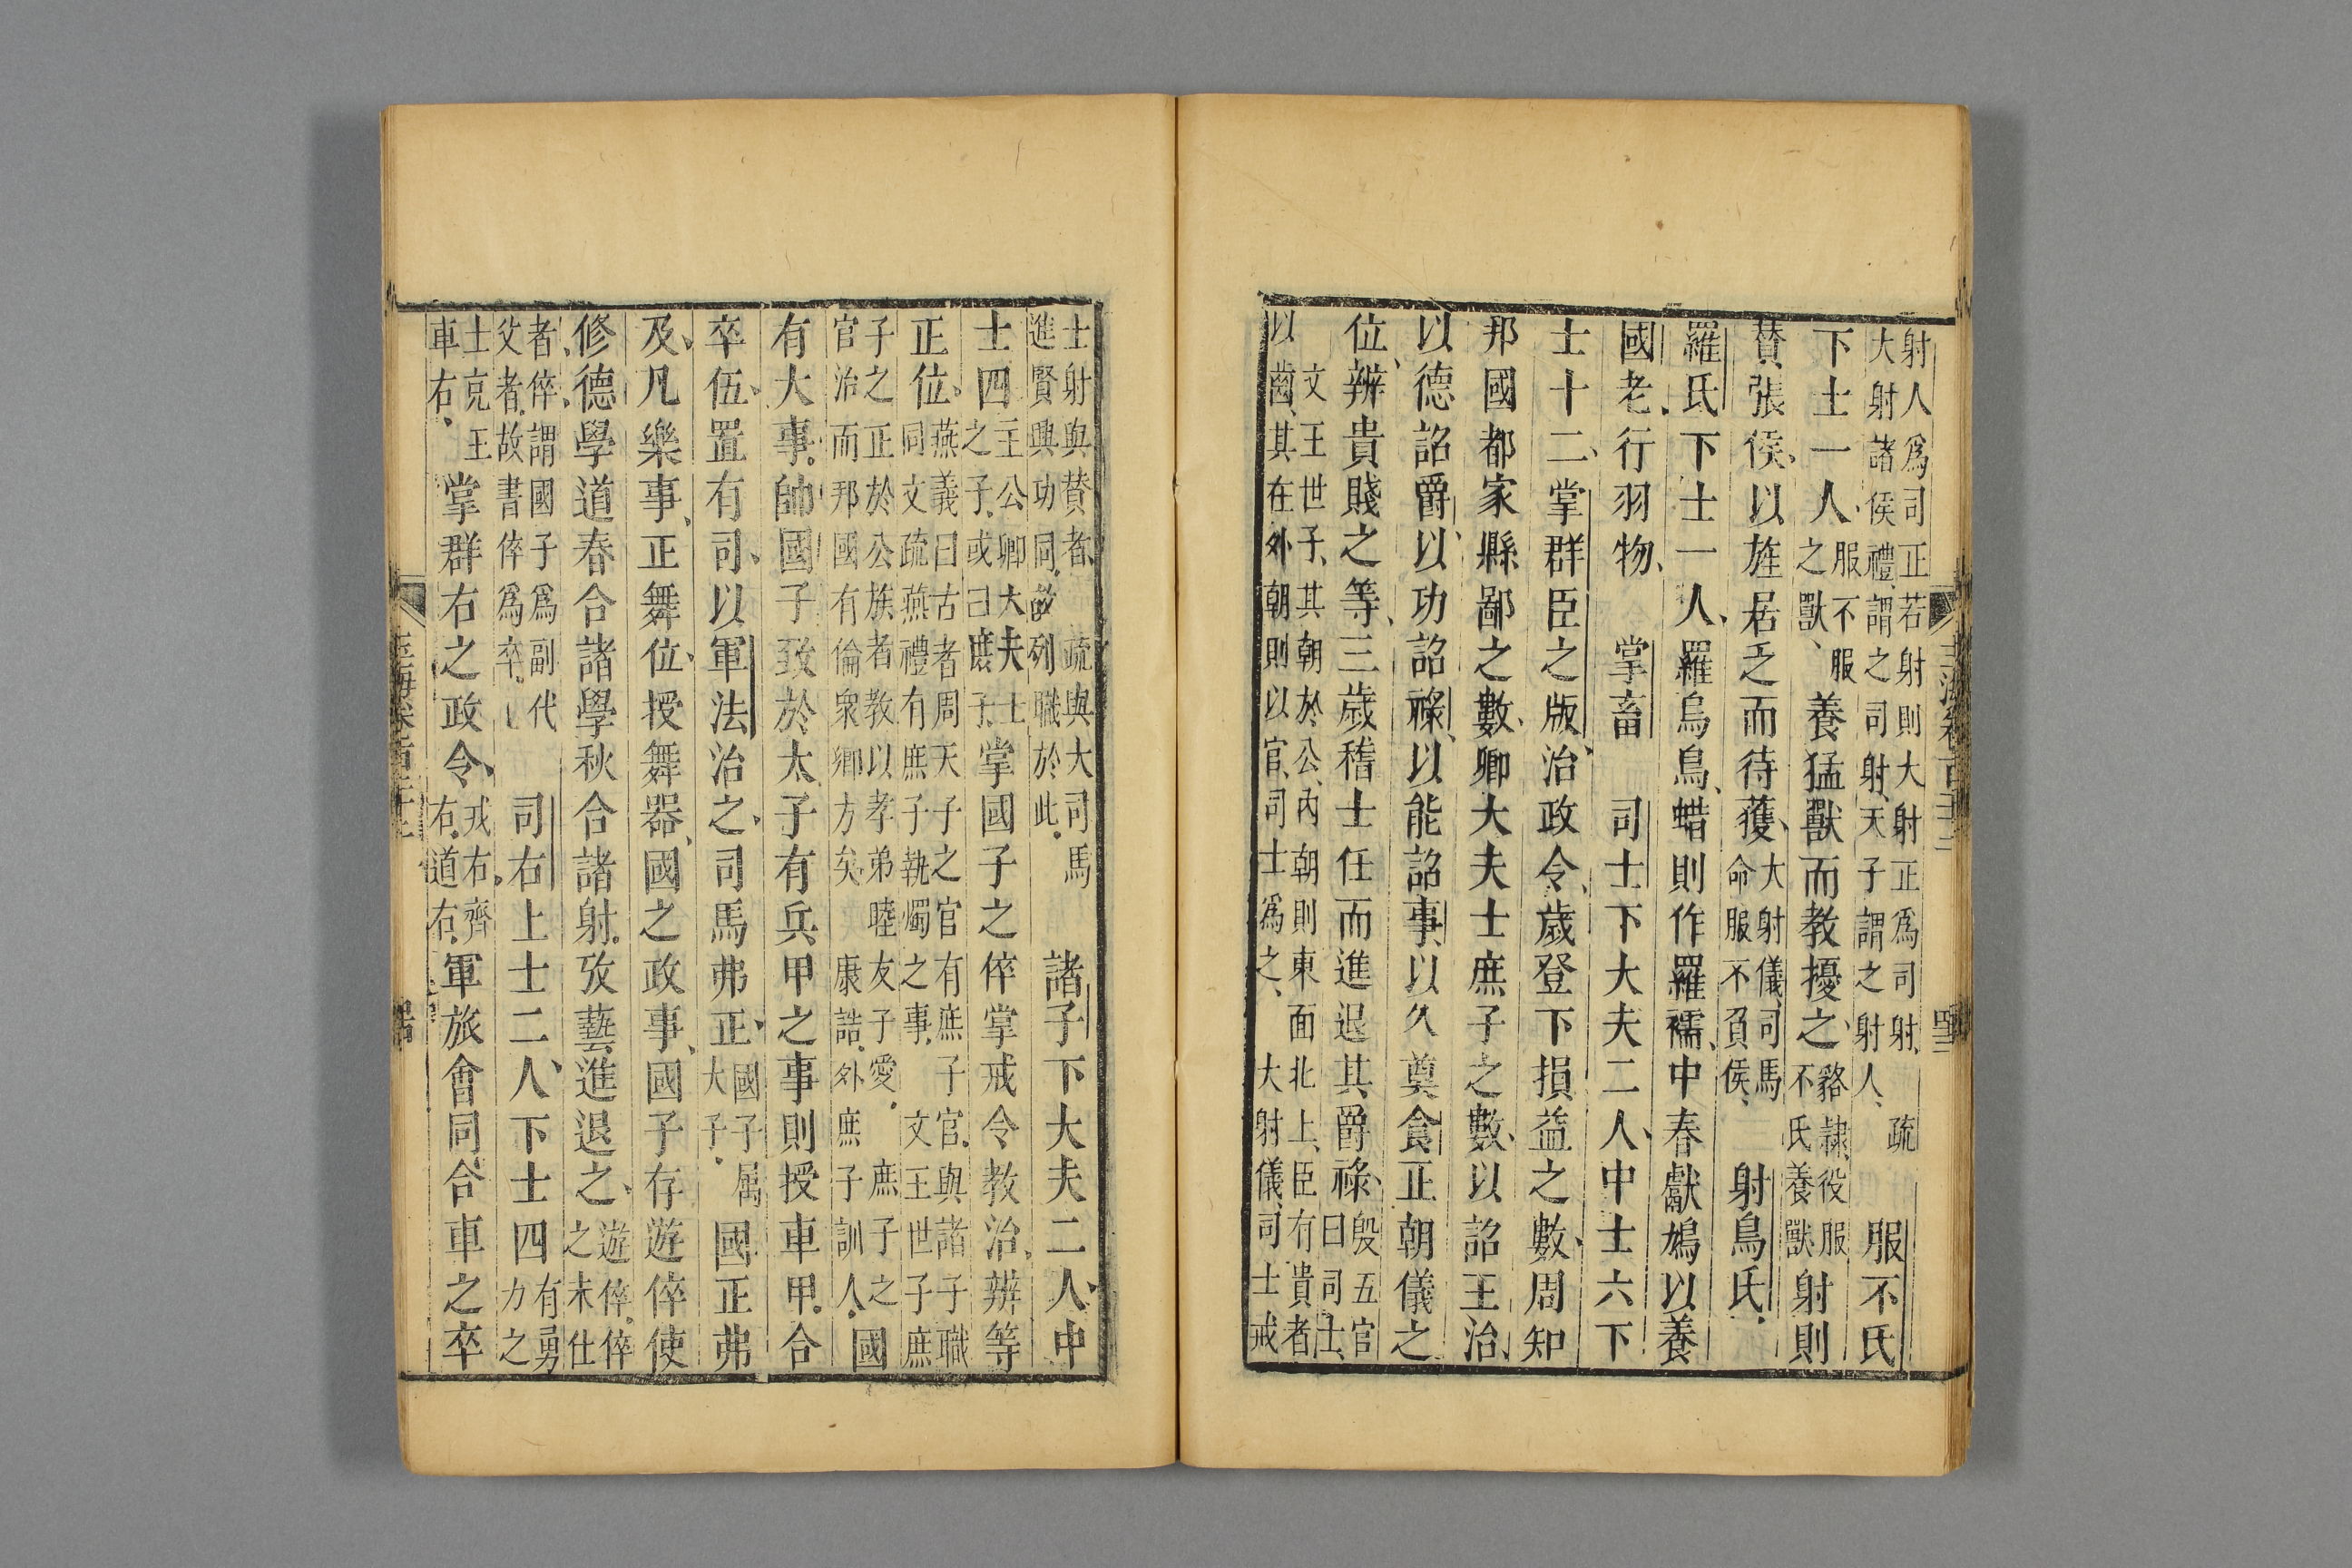 射人爲司正若射則大射正爲司射疏
大射諸侯禮謂之司射天子謂之射人
服不氏
下士一人
服不服
之獸
養猛獸而教擾之
貉隷役服
不氏養獸
射則
賛張侯以旌居乏而待獲
大射儀司馬
命服不負侯
射鳥氏
羅氏下士一人羅烏鳥蜡則作羅襦中春獻鳩以養
國老行羽物
掌畜
司士下大夫二人中士六下
士十二掌群臣之版治政令歲登下損益之數周知
邦國都家縣鄙之數卿大夫士庶子之數以詔王治
以德詔爵以功詔祿以能詔事以久奠食正朝儀之
位辨貴賤之等三歲稽士任而進退其爵祿
殷五官
曰司士
文王世子其朝於公內朝則東面北上臣有貴者
以齒其在外朝則以官司士爲之大射儀司士戒
士射與賛者疏與大司馬
進賢興功同故列職於此
諸子下大夫二人中
士四
王公卿大夫士
之子或曰庶子
掌國子之倅掌戒令教治辨等
正位
燕義曰古者周天子之官有庶子官與諸子職
同文疏燕禮有庶子執燭之事文王世子庶
子之正於公族者教以孝弟睦友子愛庶子之
官治而邦國有倫衆鄉方矣康誥外庶子訓人
國
有大事帥國子致於太子有兵甲之事則授車甲合
卒伍置有司以軍法治之司馬弗正
國子属
大子
國正弗
及凡樂事正舞位授舞器國之政事國子存遊倅使
修德學道春合諸學秋合諸射攷藝進退之
遊倅倅
之未仕
者倅謂國子爲副代
父者故書倅爲卒
司右上士二人下士四
有勇
力之
士克王
車右
掌群右之政令
戎右齊
右道右
軍旅會同合車之卒